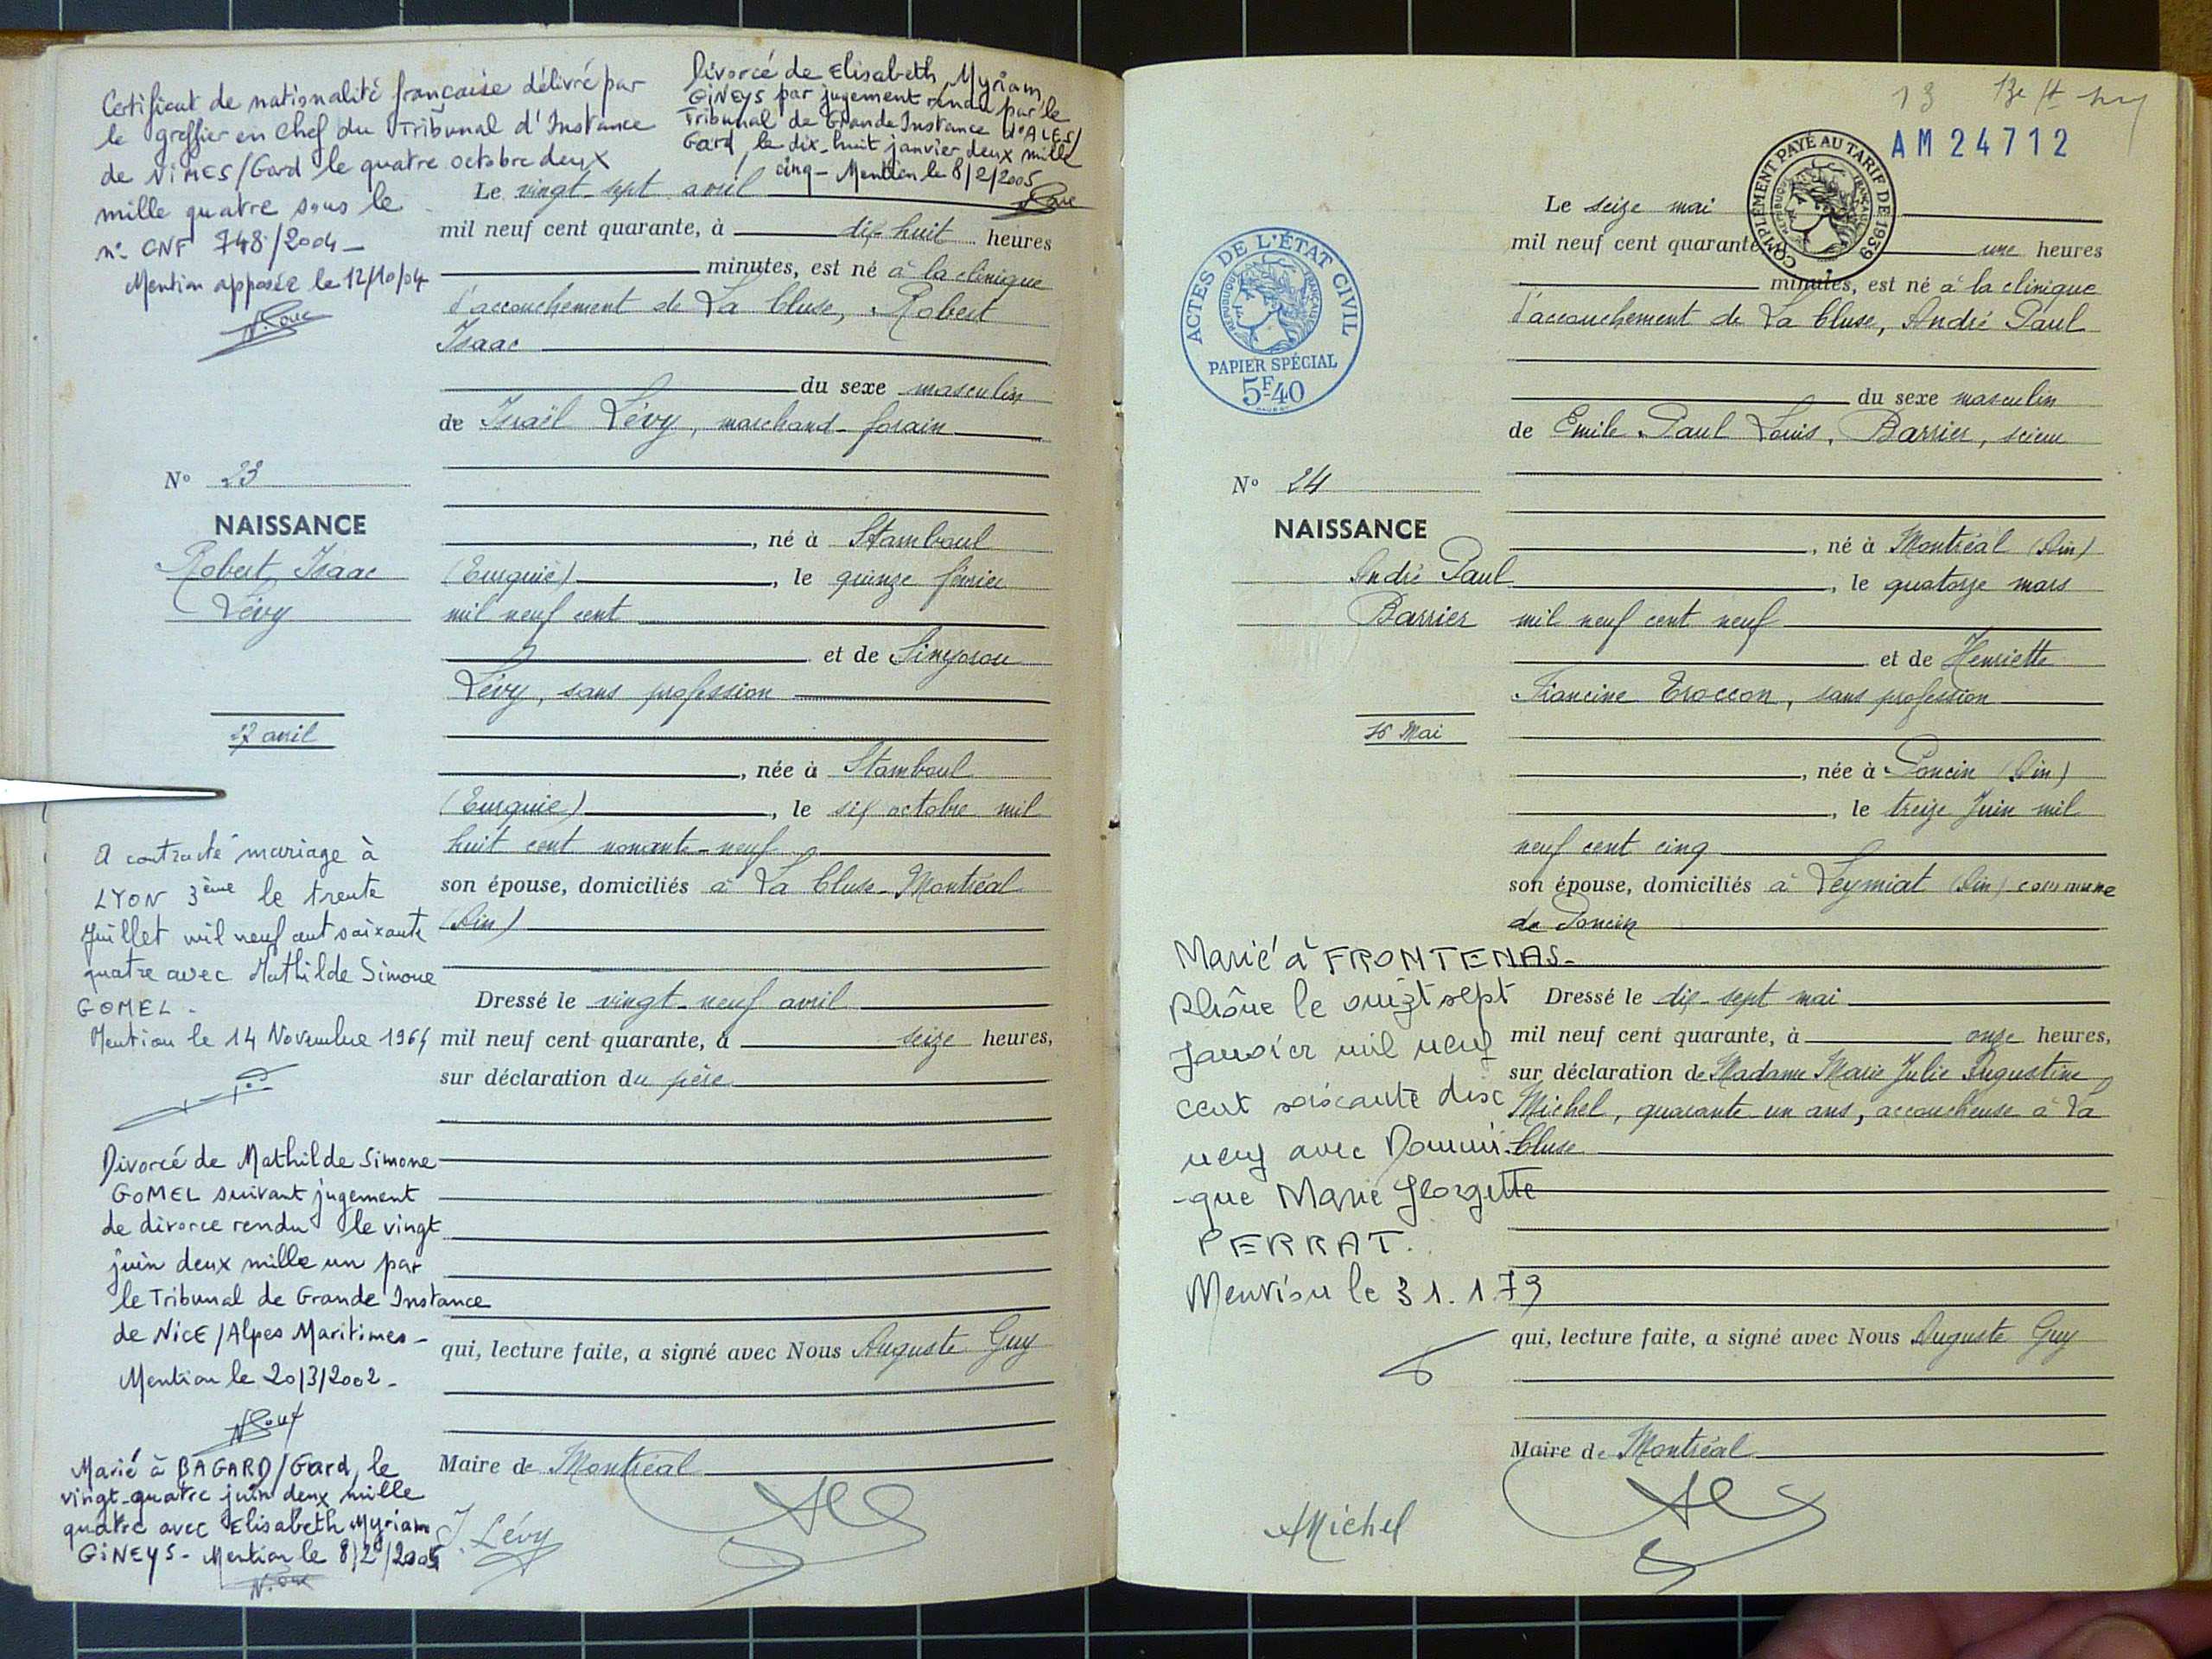 Certificat de nationalité française délivré par
le greffier en Chef du Tribunal d'Instance
de NîMES/Gard le quatre octobre deux
mille quatre sous le
n° CNF 748/2004 –
Mention apposée le 12/10/04
Divorcé de Elisabeth Myriam
GINEYS par jugement rendu par le
Tribunal de Grande Instance d'ALES/
Gard, le dix-huit janvier deux mille
cinq – Mention le 8/2/2005
Le vingt-sept avril
mil neuf cent quarante, à dix huit heures
minutes, est né à la clinique
d'accouchement de La Cluse, Robert
Isaac
du sexe masculin
de Israël Lévy, marchand-forain
N° 23
NAISSANCE
Robert, Isaac
Lévy
27 avril
, né à Stamboul
(Turquie), le quinze février
mil neuf cent
et de Sinyorou
Lévy, sans profession
, née à Stamboul
(Turquie), le six octobre mil
huit cent nonante-neuf
son épouse, domiciliés à La Cluse-Montréal
(Ain)
Dressé le vingt-neuf avril
mil neuf cent quarante, à seize heures,
sur déclaration du père
qui, lecture faite, a signé avec Nous Auguste Guy
Maire de Montréal
J. Lévy
A contracté mariage à
LYON 3ème le trente
Juillet mil neuf cent soixante
quatre avec Mathilde Simone
GOMEL.
Mention le 14 Novembre 1964
Divorcé de Mathilde Simone
GOMEL suivant jugement
de divorce rendu le vingt
juin deux mille un par
le Tribunal de Grande Instance
de NICE/Alpes Maritimes –
Mention le 20/3/2002 –
Marié à BAGARD/Gard, le
vingt-quatre juin deux mille
quatre avec Elisabeth Myriam
GINEYS – Mention le 8/2/2005
13
AM 24712
COMPLÉMENT PAYÉ AU TARIF DE 1939
RÉPUBLIQUE FRANÇAISE
ACTES DE L'ÉTAT CIVIL
RÉPUBLIQUE FRANÇAISE
PAPIER SPÉCIAL
5F40
Le seize mai
mil neuf cent quarante, à une heures
minutes, est né à la clinique
d'accouchement de La Cluse, André Paul
du sexe masculin
de Emile Paul Louis, Barrier, scieur
N° 24
NAISSANCE
André Paul
Barrier
16 Mai
, né à Montréal (Ain)
, le quatorze mars
mil neuf cent neuf
et de Henriette
Francine Troccon, sans profession
, née à Poncin (Ain)
, le treize Juin mil
neuf cent cinq
son épouse, domiciliés à Leymiat (Ain) commune
de Poncin
Dressé le dix-sept mai
mil neuf cent quarante, à onze heures,
sur déclaration de Madame Marie Julie Augustine
Michel, quarante-un ans, accoucheuse à La
Cluse
qui, lecture faite, a signé avec Nous Auguste Guy
Maire de Montréal
AMichel
Marié à FRONTENAS-
Rhône le vingt sept
Janvier mil neuf
cent soixante dix
neuf avec Domini-
-que Marie Georgette
PERRAT.
Mention le 31.1.79